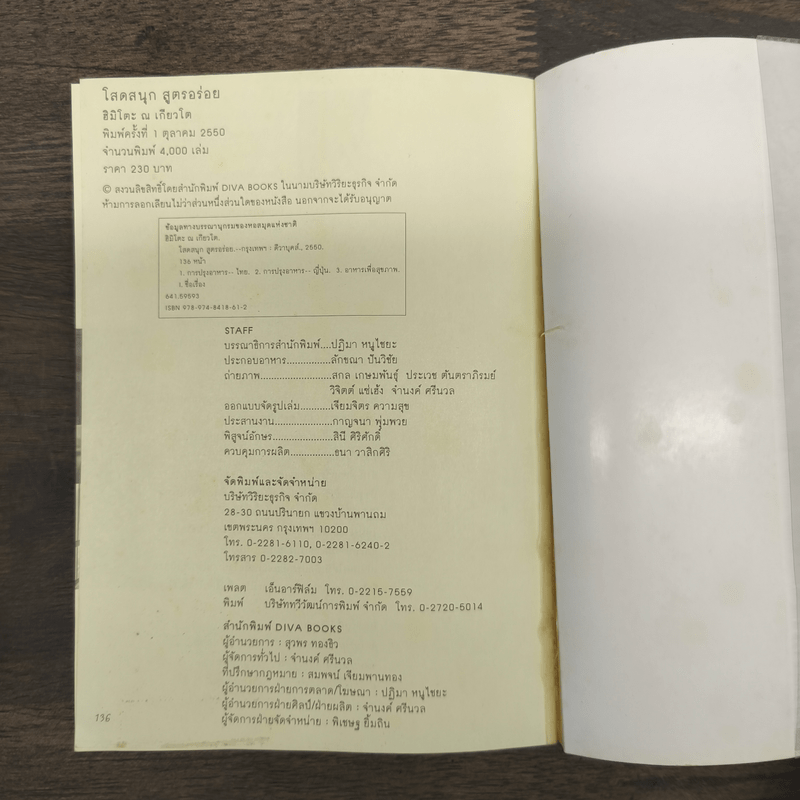 โสดสนุก สูตรอร่อย
ฮิมิโตะ ณ เกียวโต
พิมพ์ครั้งที่ 1 ตุลาคม 2550
จำนวนพิมพ์ 4,000 เล่ม
ราคา 230 บาท
© สงวนลิขสิทธิ์โดยสำนักพิมพ์ DIVA BOOKS ในนามบริษัทวิริยะธุรกิจ จำกัด
ห้ามการลอกเลียนไม่ว่าส่วนหนึ่งส่วนใดของหนังสือ นอกจากจะได้รับอนุญาต
ข้อมูลทางบรรณานุกรมของหอสมุดแห่งชาติ
ฮิมิโตะ ณ เกียวโต.
โสดสนุก สูตรอร่อย.--กรุงเทพฯ : ดีวาบุคส์, 2550.
136 หน้า
1. การปรุงอาหาร-- ไทย. 2. การปรุงอาหาร-- ญี่ปุ่น. 3. อาหารเพื่อสุขภาพ.
I. ชื่อเรื่อง
641.59593
ISBN 978-974-8418-61-2
STAFF
บรรณาธิการสำนักพิมพ์....ปฏิมา หนูไชยะ
ประกอบอาหาร................ลักขณา ปันวิชัย
ถ่ายภาพ..........................สกล เกษมพันธุ์ ประเวช ตันตราภิรมย์
วิจิตต์ แซ่เฮ้ง จำนงค์ ศรีนวล
ออกแบบจัดรูปเล่ม...........เจียมจิตร ความสุข
ประสานงาน.....................กาญจนา พุ่มพวย
พิสูจน์อักษร......................สินี ศิริศักดิ์
ควบคุมการผลิต................ธนา วาสิกศิริ
จัดพิมพ์และจัดจำหน่าย
บริษัทวิริยะธุรกิจ จำกัด
28-30 ถนนปรินายก แขวงบ้านพานถม
เขตพระนคร กรุงเทพฯ 10200
โทร. 0-2281-6110, 0-2281-6240-2
โทรสาร 0-2282-7003
เพลต เอ็นอาร์ฟิล์ม โทร. 0-2215-7559
พิมพ์ บริษัททวีวัฒน์การพิมพ์ จำกัด โทร. 0-2720-5014
สำนักพิมพ์ DIVA BOOKS
ผู้อำนวยการ : สุวพร ทองธิว
ผู้จัดการทั่วไป : จำนงค์ ศรีนวล
ที่ปรึกษากฎหมาย : สมพจน์ เจียมพานทอง
ผู้อำนวยการฝ่ายการตลาด/โฆษณา : ปฏิมา หนูไชยะ
ผู้อำนวยการฝ่ายศิลป์/ฝ่ายผลิต : จำนงค์ ศรีนวล
ผู้จัดการฝ่ายจัดจำหน่าย : พิเชษฐ ยิ้มถิน
136